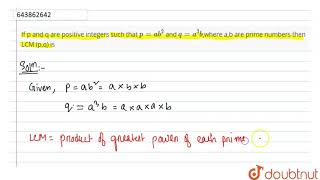 643862642
If p and q are positive integers such that p = ab² and q = a³b, where a,b are prime numbers then
LCM (p,q) is
Sol^n :-
Given, p = ab² = a × b × b
q = a³b = a × a × a × b
LCM = product of greatest power of each prime
doubtnut